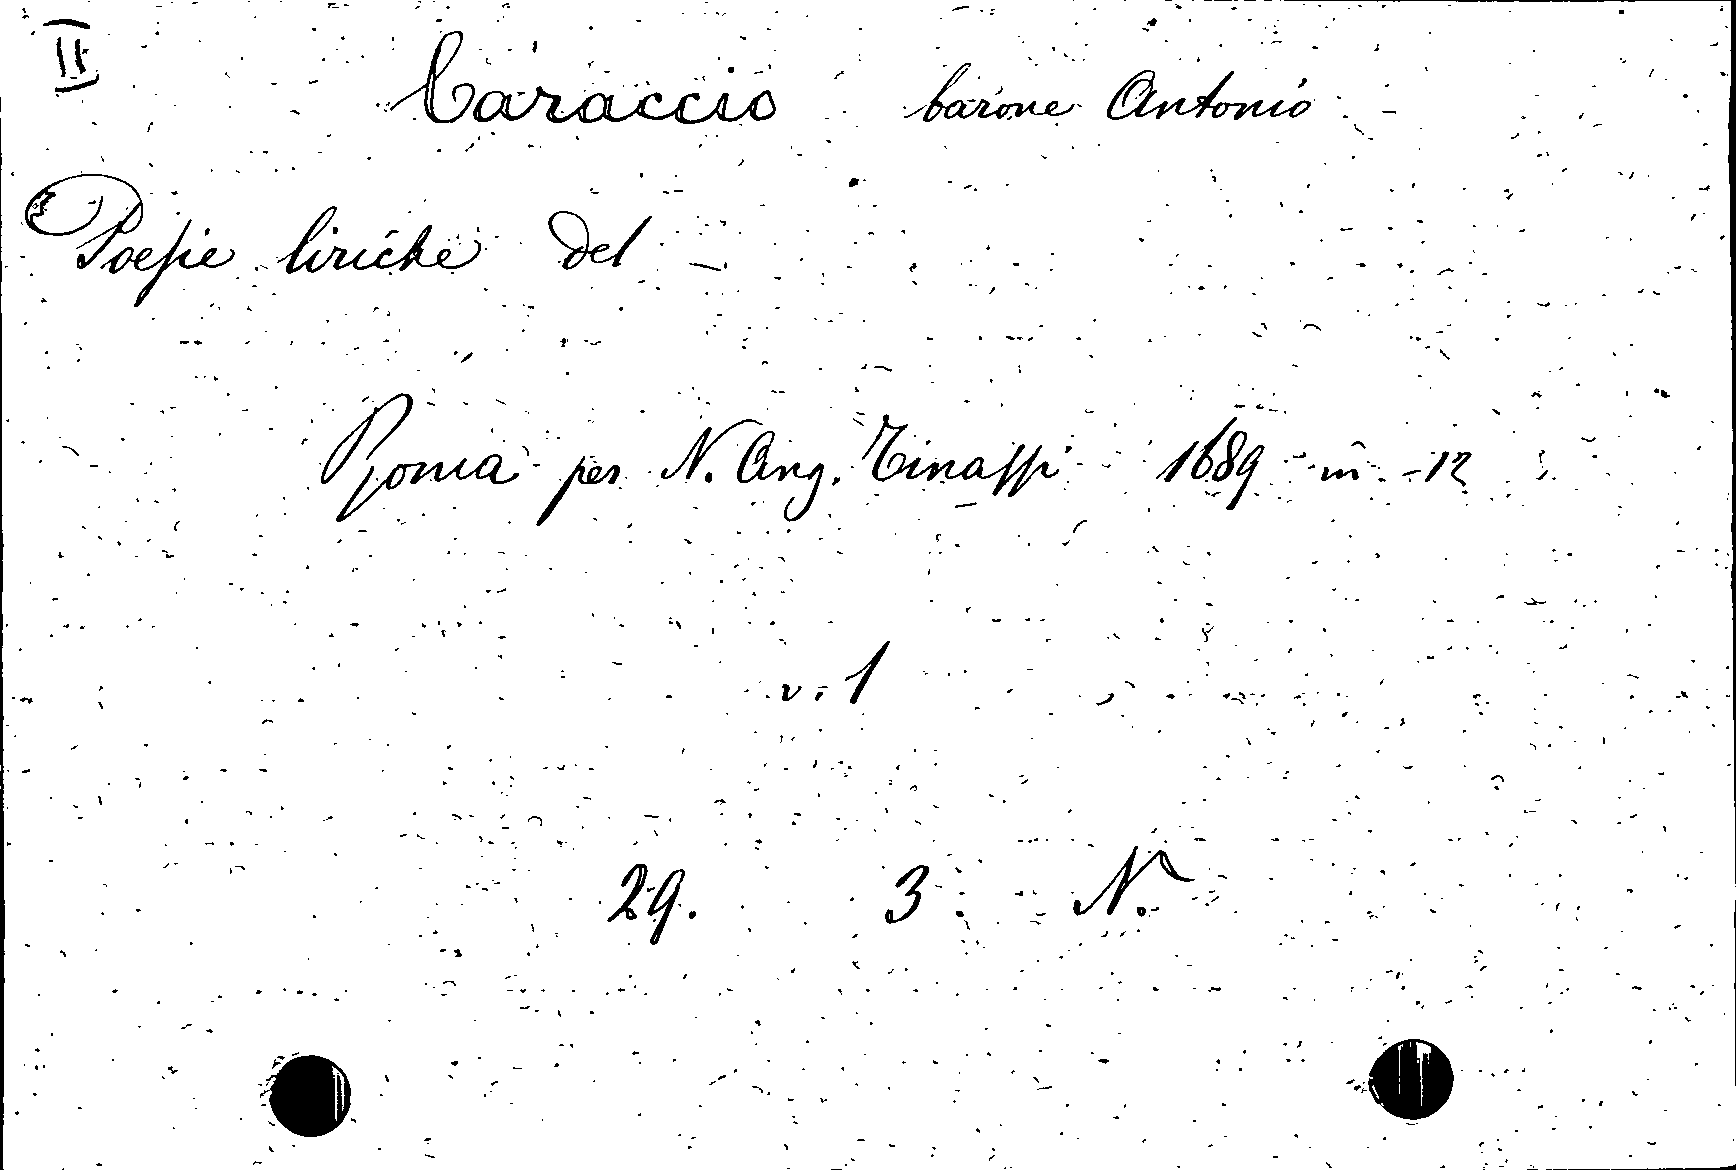 II
Caraccio barone Antonio
Poesie liriche del —
Roma per N. Ang. Tinassi 1689 in -12
v. 1
29. 3. N.